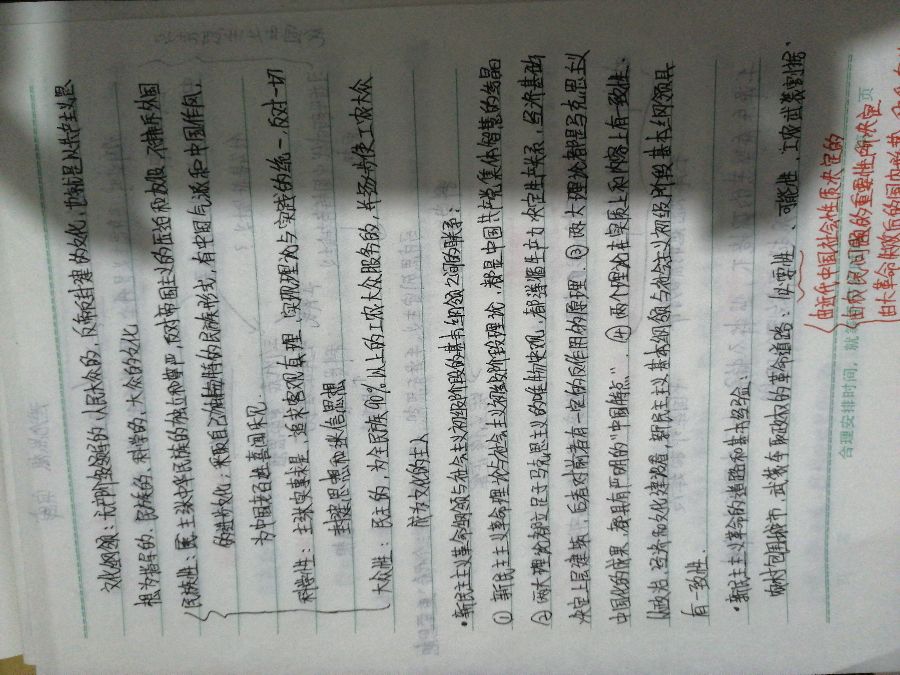 文化纲领：无产阶级领导的、人民大众的，反帝反封建的文化，也就是以共产主义思
想为指导的、民族的、科学的、大众的文化
民族性：主张中华民族的独立和尊严，反对帝国主义的压迫和奴役，不排斥外国
的进步文化，采取自己所拥有的民族形式，有中国气派和中国作风，
为中国老百姓喜闻乐见。
科学性：主张实事求是，追求客观真理，实现理论与实践的统一，反对一切
封建思想和迷信思想
大众性：民主的，为全民族90%以上的工农大众服务的，并逐步使工农大众
成为文化的主人
·新民主主义革命纲领与社会主义初级阶段的基本纲领之间的联系：
① 新民主主义革命理论与社会主义初级阶段理论，都是中国共产党集体智慧的结晶
② 两大理论都立足于马克思主义的唯物史观，都遵循生产力决定生产关系，经济基础
决定上层建筑，后者对前者有一定的反作用的原理 ③ 两大理论都是马克思主义
中国化的成果，都具有严明的“中国特点”．④ 两个理论在实质上和内容上有一致性．
从政治、经济和文化建设看，新民主主义基本纲领与社会主义初级阶段基本纲领具
有一致性．
·新民主主义革命的道路和基本经验：
农村包围城市、武装夺取政权的革命道路：必要性、可能性、工农武装割据、
由近代中国社会性质决定的
由农民问题的重要性所决定
由大革命失败后的
合理安排时间，就
页